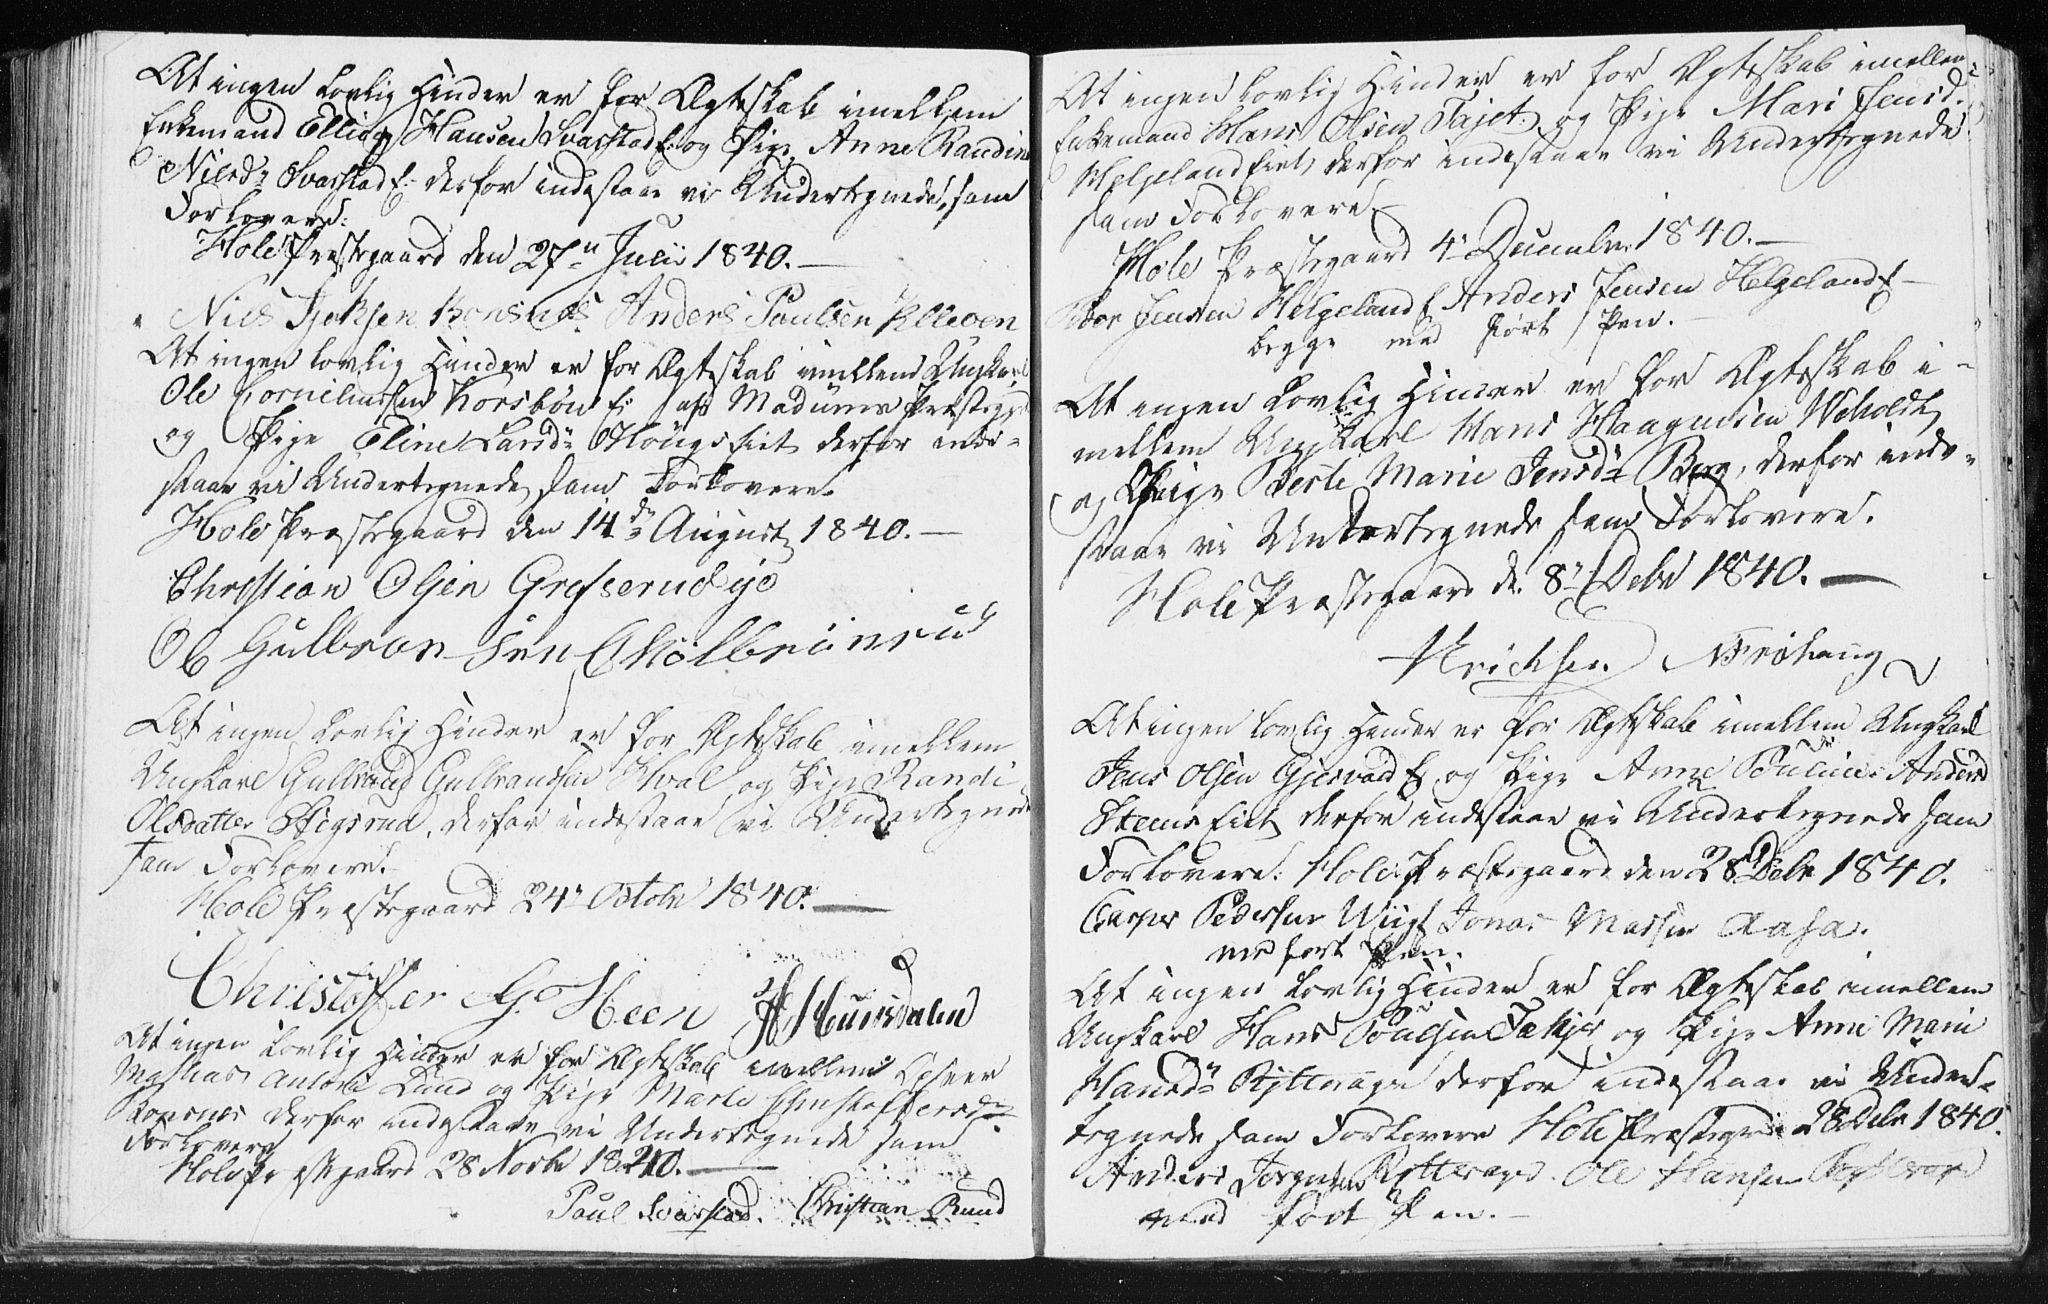 At ingen Lovlig Hinder er for Ægteskab imellem
Enkemand Elling Hansen Svarstad E: og Pige Anne Randine
Nilsd: Svarstad E: derfor indestaae vi Undertegnede, som
Forlovere:
Hole Præstegaard den 27n Julii 1840. —
Niels Hansen Anders Paulsen
At ingen lovlig Hinder er for Ægteskab imellem Ungkarl
Ole Corneliussen Korsbøn E: af Modums Præstegjd
og Pige Eline Larsd: Houg Eiet derfor inde=
staae vi Undertegnede som Forlovere.
Hole Præstegaard den 14de August 1840. —
Christian Olsen Grefserudeje
Ole Gulbransen Mølbrønrud
At ingen Lovlig Hinder er for Ægteskab imellem
Ungkarl Gulbrand Gulbrandsen Hval og Pige Randi
Olsdatter Stigsrud, derfor indestaae vi Undertegnede
som Forlovere. —
Hole Præstegaard 24' Octobr 1840. —
Christoffer G. Heen
At ingen Lovlig Hinder er for Ægteskab imellem
Mathias Anton Lund og Pige Marte Christoffersd:
Rønsnes derfor indestaae vi Undertegnede som
Forlovere
Hole Præstegaard 28 Novbr 1840. —
Paul Svarstad. Christian Lund
At ingen Lovlig Hinder er for Ægteskab imellem
Enkemand Hans Olsen Fajet og Pige Mari Jensd.
Helgeland Eiet, derfor indestaae vi Undertegnede
som Forlovere —
Hole Præstegaard 4' December 1840. —
Thor Jensen Helgeland E Anders Jensen Helgeland E —
begge med ført Pen. —
At ingen Lovlig Hinder er for Ægteskab i-
mellem Ungkarl Hans Haagensen Weholdt
og Pige Berte Marie Jensd: Berg, derfor inde=
staae vi Undertegnede som Forlovere.
Hole Præstegaard d. 8' Debr 1840. —
At ingen lovlig Hinder er for Ægteskab imellem Ungkarl
Jens Olsen Gjesvad E og Pige Anne Pauline Andersd
Steens Eiet derfor indestaae vi Undertegnede som
Forlovere. Hole Præstegaard den 28 Debr 1840.
Casper Pedersen Wiig E Jonas Massen Aasa.
med ført Pen.
At ingen Lovlig Hinder er for Ægteskab imellem
Ungkarl Hans Poulsen og Pige Anne Marie
Hansd: Rytterager derfor indestaae vi Under=
tegnede som Forlovere Hole Præstegrd 28 Debr 1840.
Anders Jørgensen Rytterager Ole Hansen
med ført Pen. —